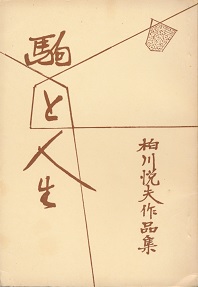 駒と人生
柏川悦夫作品集